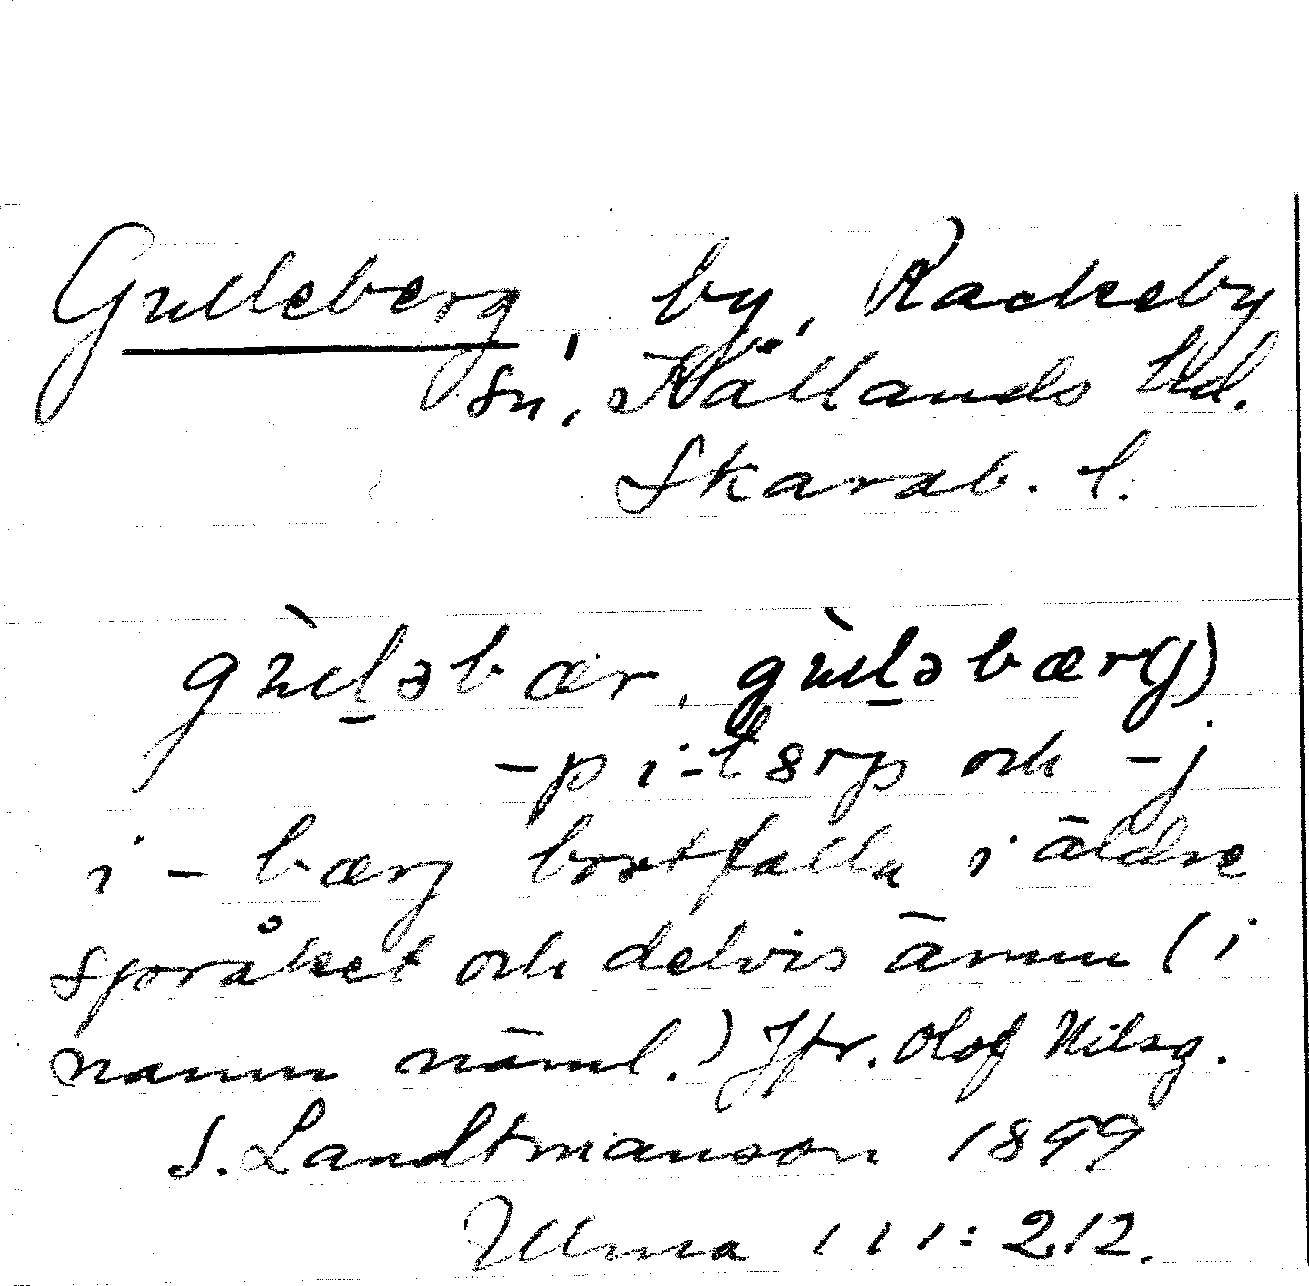 Gulleberg, by, Rackeby
sn, Kållands hd.
Skarab. l.
gùl̠əbær, gùl̠əbærg)
-p i -tɔrp och -j
i -bærj bortfalla i äldre
språket och delvis ännu (i
namn näml.) Jfr. Olof Nilsg.
S. Landtmanson 1899
Ulma 111:212.